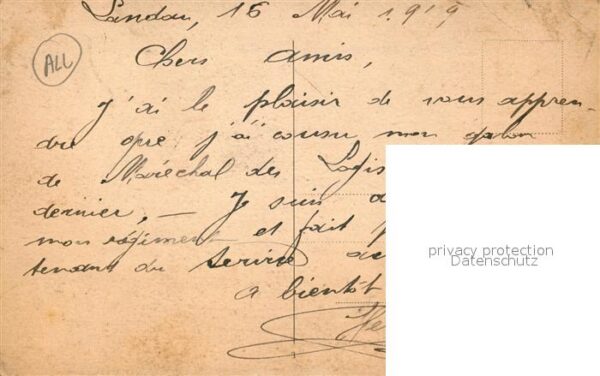 Landau, 16 Mai 1919
ALL
Chers amis,
J'ai le plaisir de vous appren-
dre que j'ai cousu mon galon
de Maréchal des Logis
dernier, — Je suis
mon régiment et fait
tenant du service
a bientôt
privacy protection
Datenschutz